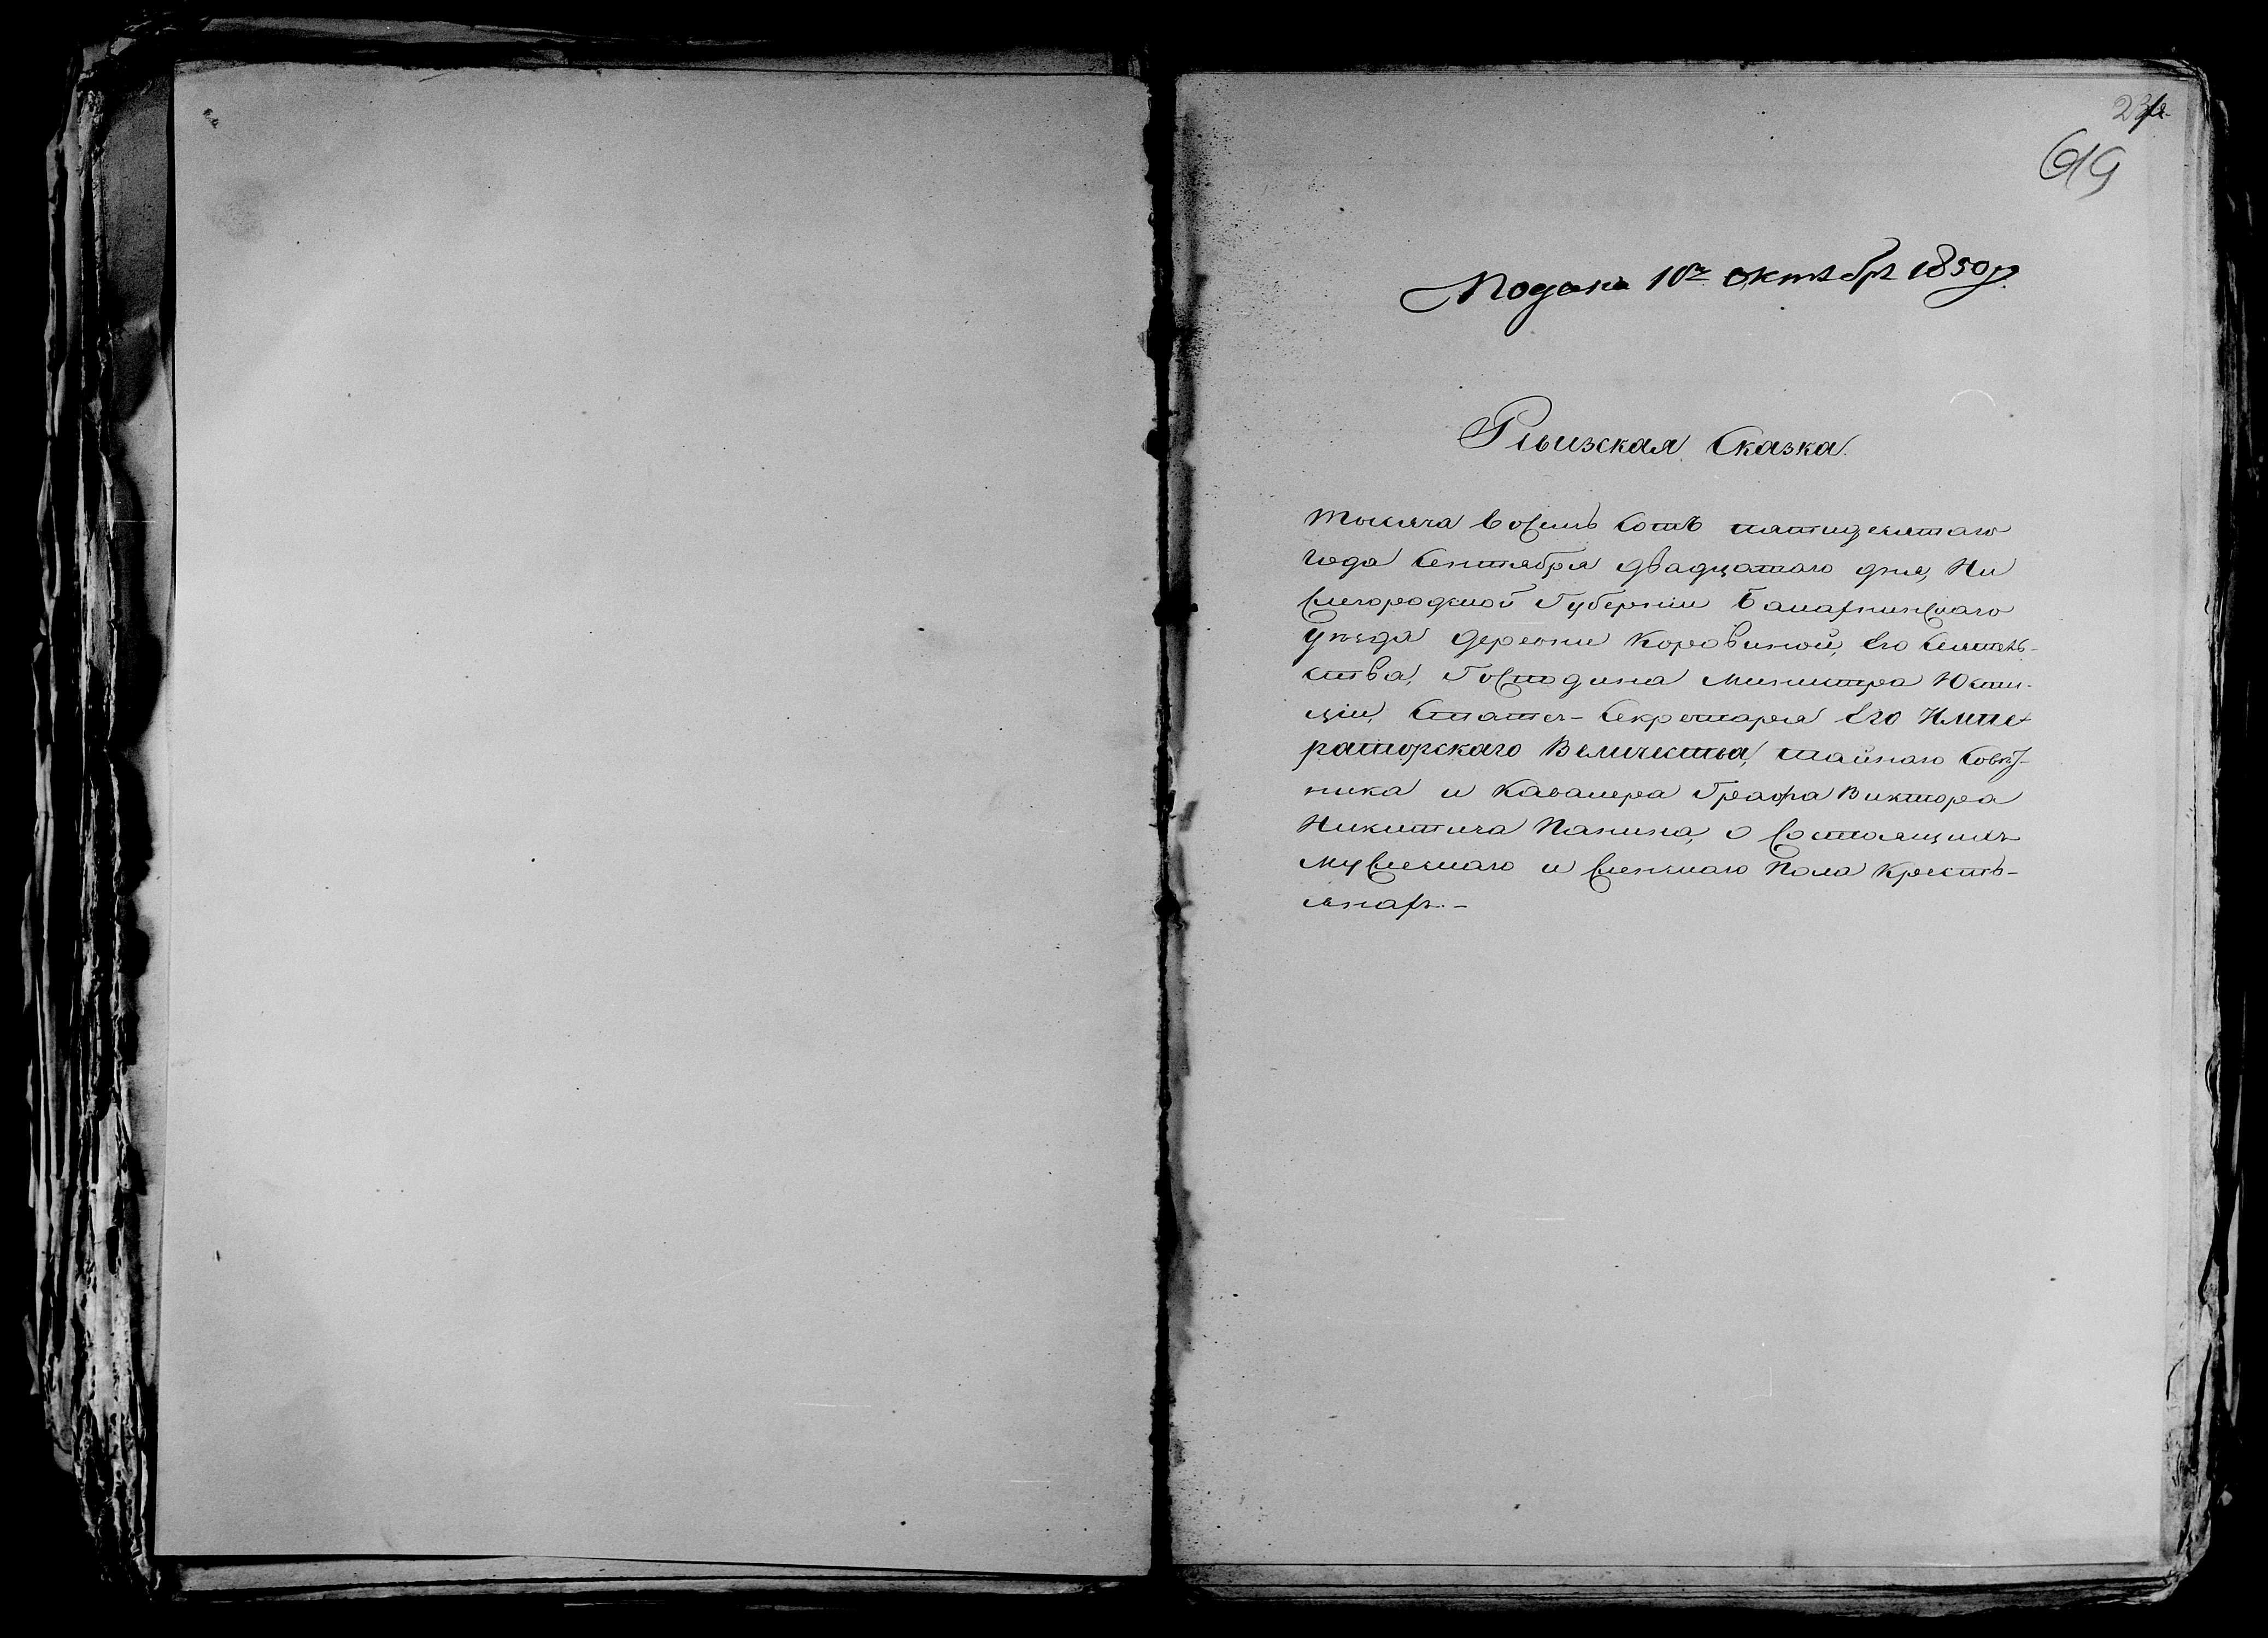 619
Подана 10го октября 1850г.
Ревизская Сказка.
Тысяча восемь сотъ пятидесятаго
года Сентября двадцатаго дня, Ни
жегородской Губерніи Балахнинскаго
уѣзда деревни Коровиной, Его Сіятель-
ства, Господина Министра Юсти-
ціи, Статсъ-Секретаря Его Импе
раторскаго Величества, тайнаго Совѣт-
ника и Кавалера Графа Виктора
Никитича Панина, о состоящихъ
мужескаго и женскаго пола Кресть-
янахъ.-